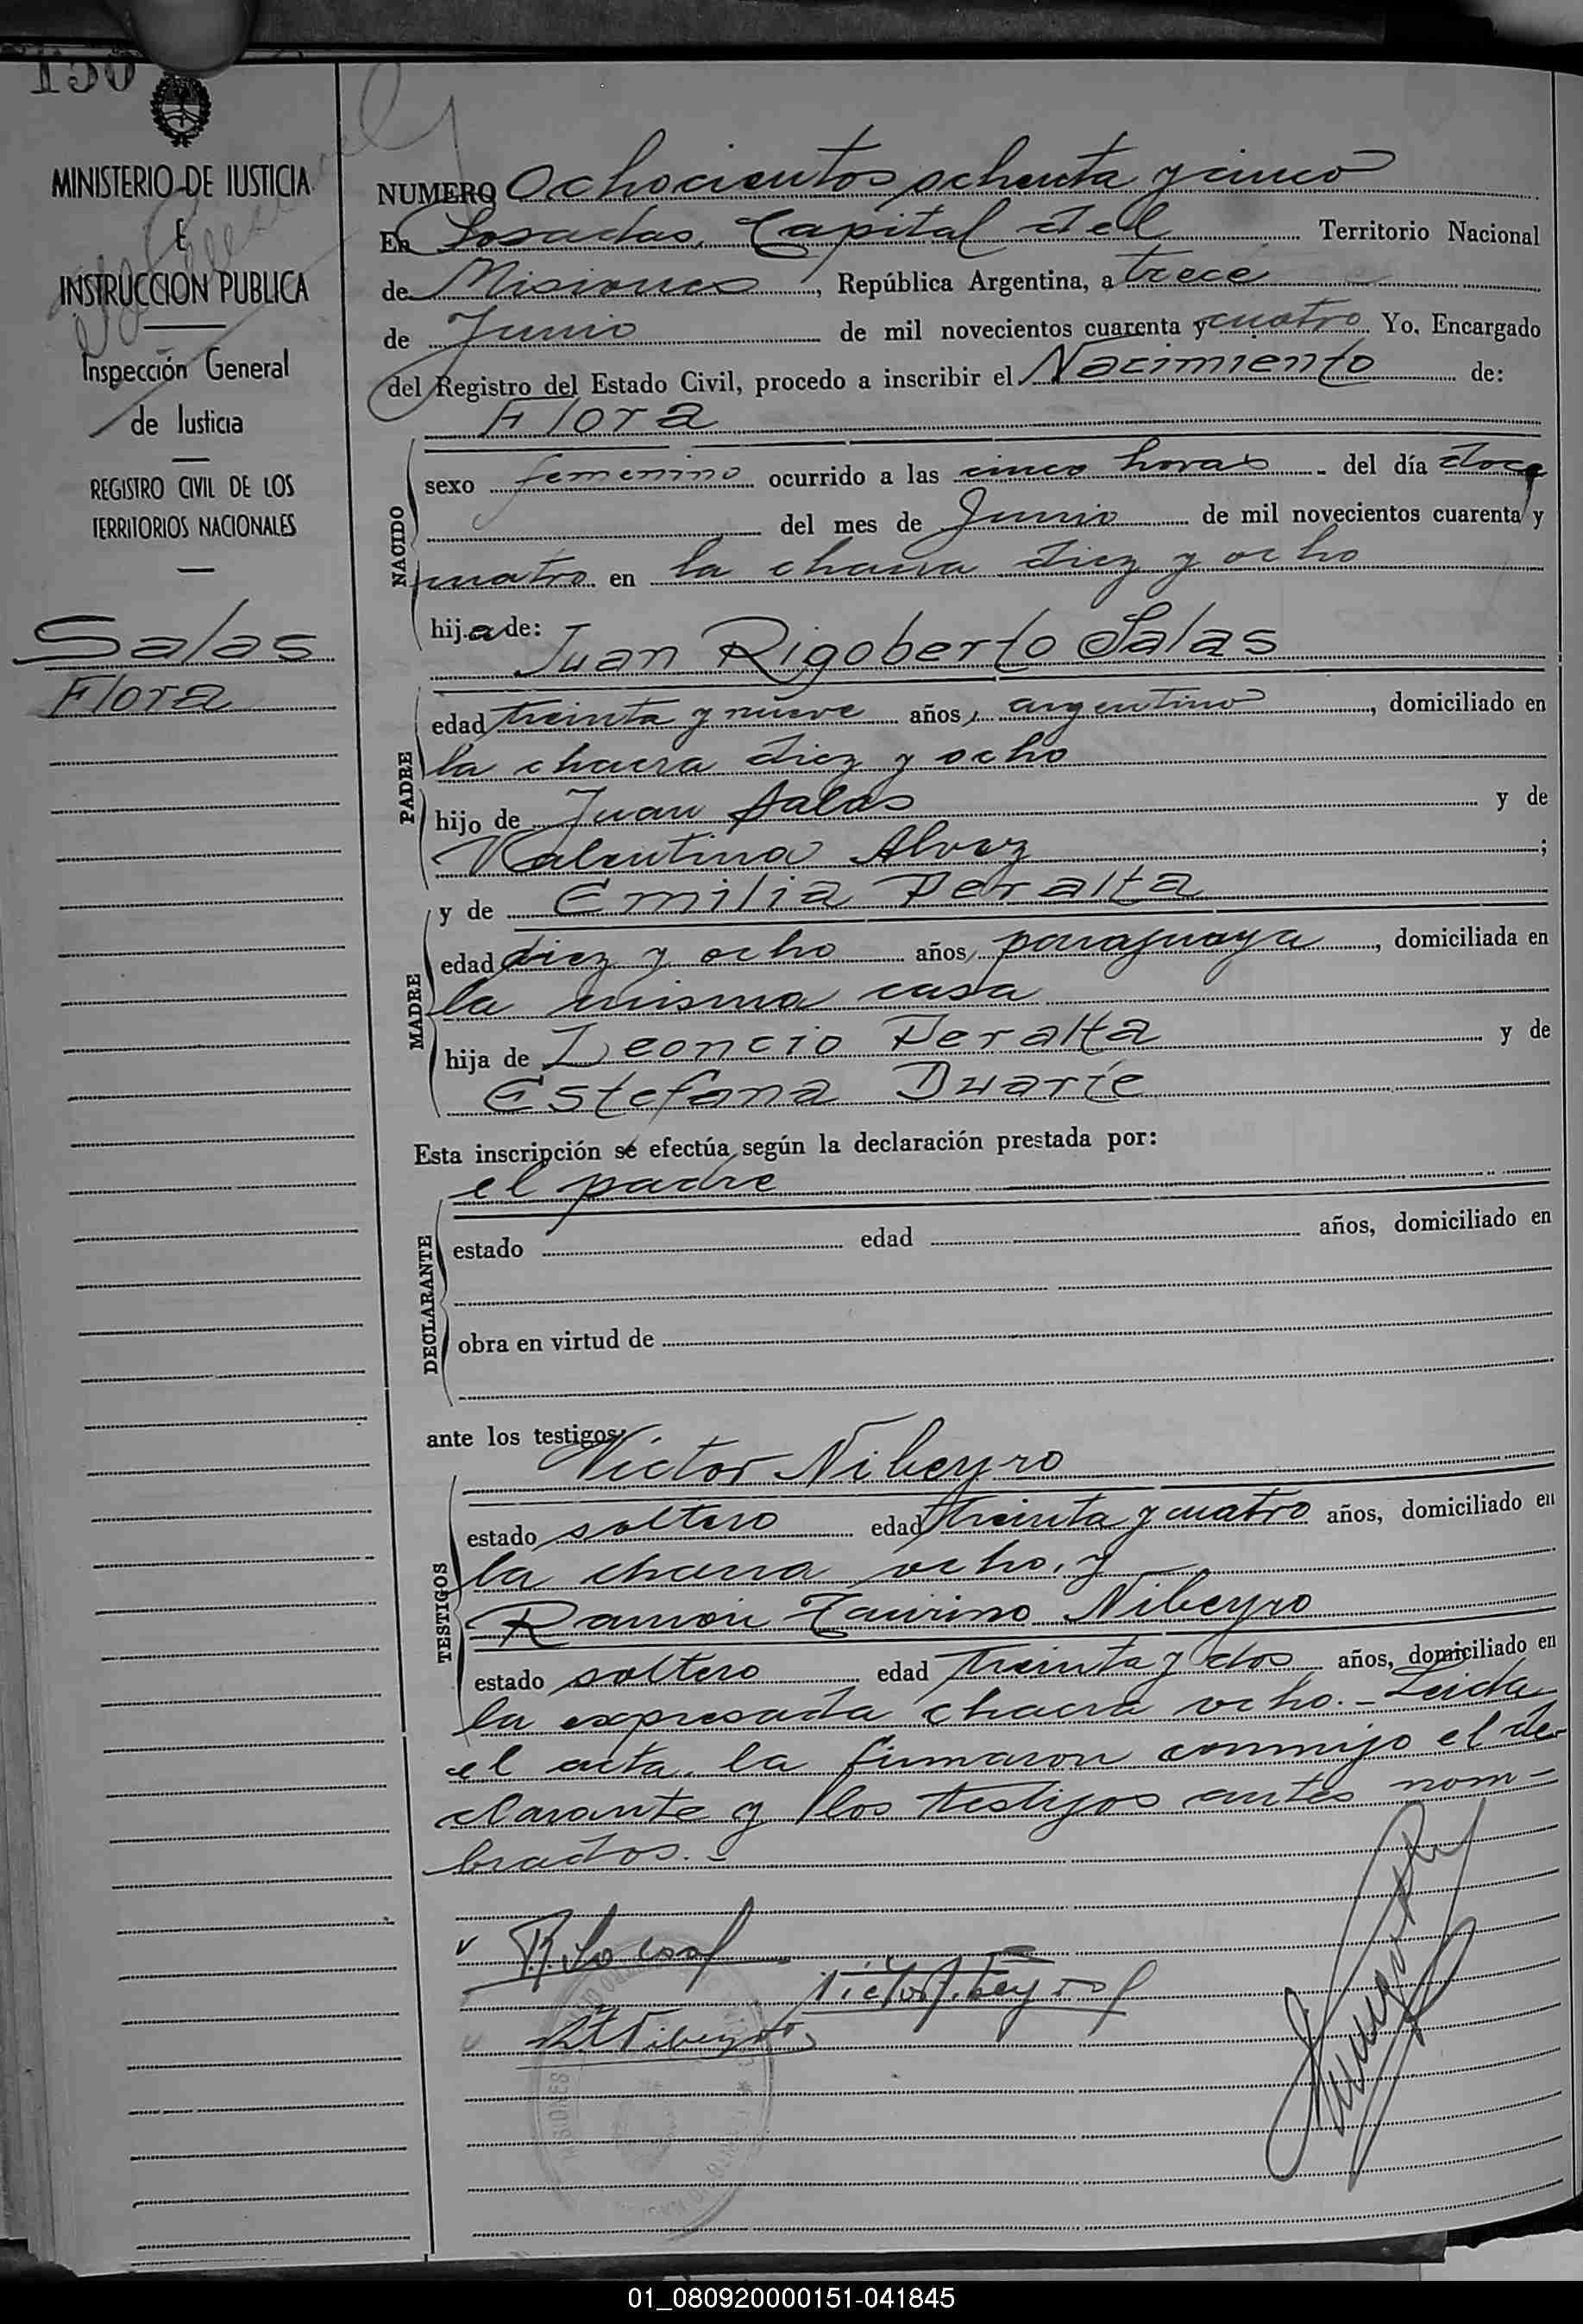 150
MINISTERIO DE JUSTICIA
E
INSTRUCCION PUBLICA
Inspección General
de Justicia
REGISTRO CIVIL DE LOS
TERRITORIOS NACIONALES
Salas
Flora
NUMERO Ochocientos ochenta y cinco
En Posadas, Capital del Territorio Nacional
de Misiones, República Argentina, a trece
de Junio de mil novecientos cuarenta y cuatro Yo, Encargado
del Registro del Estado Civil, procedo a inscribir el Nacimiento de:
Flora
NACIDO
sexo femenino ocurrido a las cinco horas del día doce
del mes de Junio de mil novecientos cuarenta y
cuatro en la chacra diez y ocho
hija de:
Juan Rigoberto Salas
PADRE
edad treinta y nueve años, argentino, domiciliado en
la chacra diez y ocho
hijo de Juan Salas y de
Valentina Alvez;
MADRE
y de Emilia Peralta
edad diez y ocho años, paraguaya, domiciliada en
la misma casa
hija de Leoncio Peralta y de
Estefana Duarte
Esta inscripción se efectúa según la declaración prestada por:
el padre
DECLARANTE
estado edad años, domiciliado en
obra en virtud de
ante los testigos:
Víctor Nibeyro
TESTIGOS
estado soltero edad treinta y cuatro años, domiciliado en
la chacra ocho, y
Ramón Taurino Nibeyro
estado soltero edad treinta y dos años, domiciliado en
la expresada chacra ocho.- Leida
el acta, la firmaron conmigo el de-
clarante y los testigos antes nom-
brados.-
01_080920000151-041845